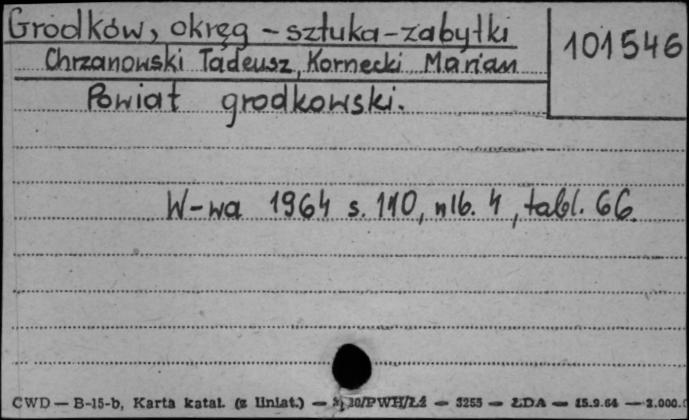 Grodków, okręg - sztuka - zabytki
101546
Chrzanowski Tadeusz, Kornecki Marian
Powiat grodkowski.
W-wa 1964 s. 110, nlb. 4, tabl. 66.
CWD — B-15-b, Karta katal. (z liniat.) — 30/PWH/Ł2 — 3255 — ŁDA — 15.9.64 —